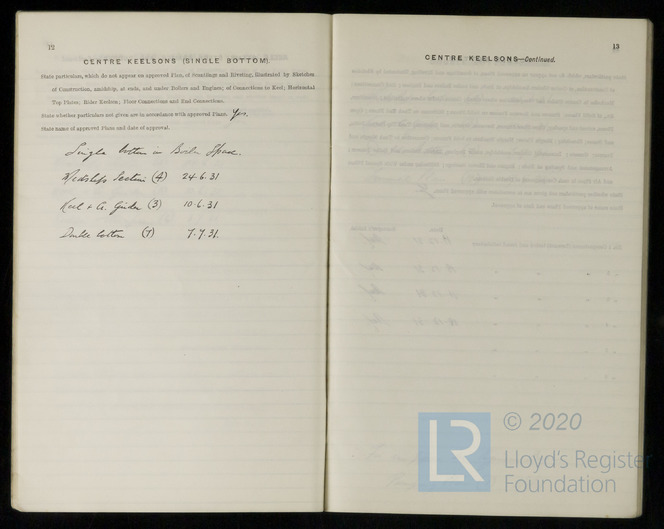 12
CENTRE KEELSONS (SINGLE BOTTOM).
State particulars, which do not appear on approved Plan, of Scantlings and Riveting, illustrated by Sketches
of Construction, amidship, at ends, and under Boilers and Engines; of Connections to Keel; Horizontal
Top Plates; Rider Keelson; Floor Connections and End Connections.
State whether particulars not given are in accordance with approved Plans. Yes.
State name of approved Plans and date of approval.
Single bottom in Boiler Space.
Midships Section (4) 24.6.31
Keel & C. Girder (3) 10.6.31
Double bottom (7) 7.7.31.
13
CENTRE KEELSONS—Continued.
LR
© 2020
Lloyd's Register
Foundation